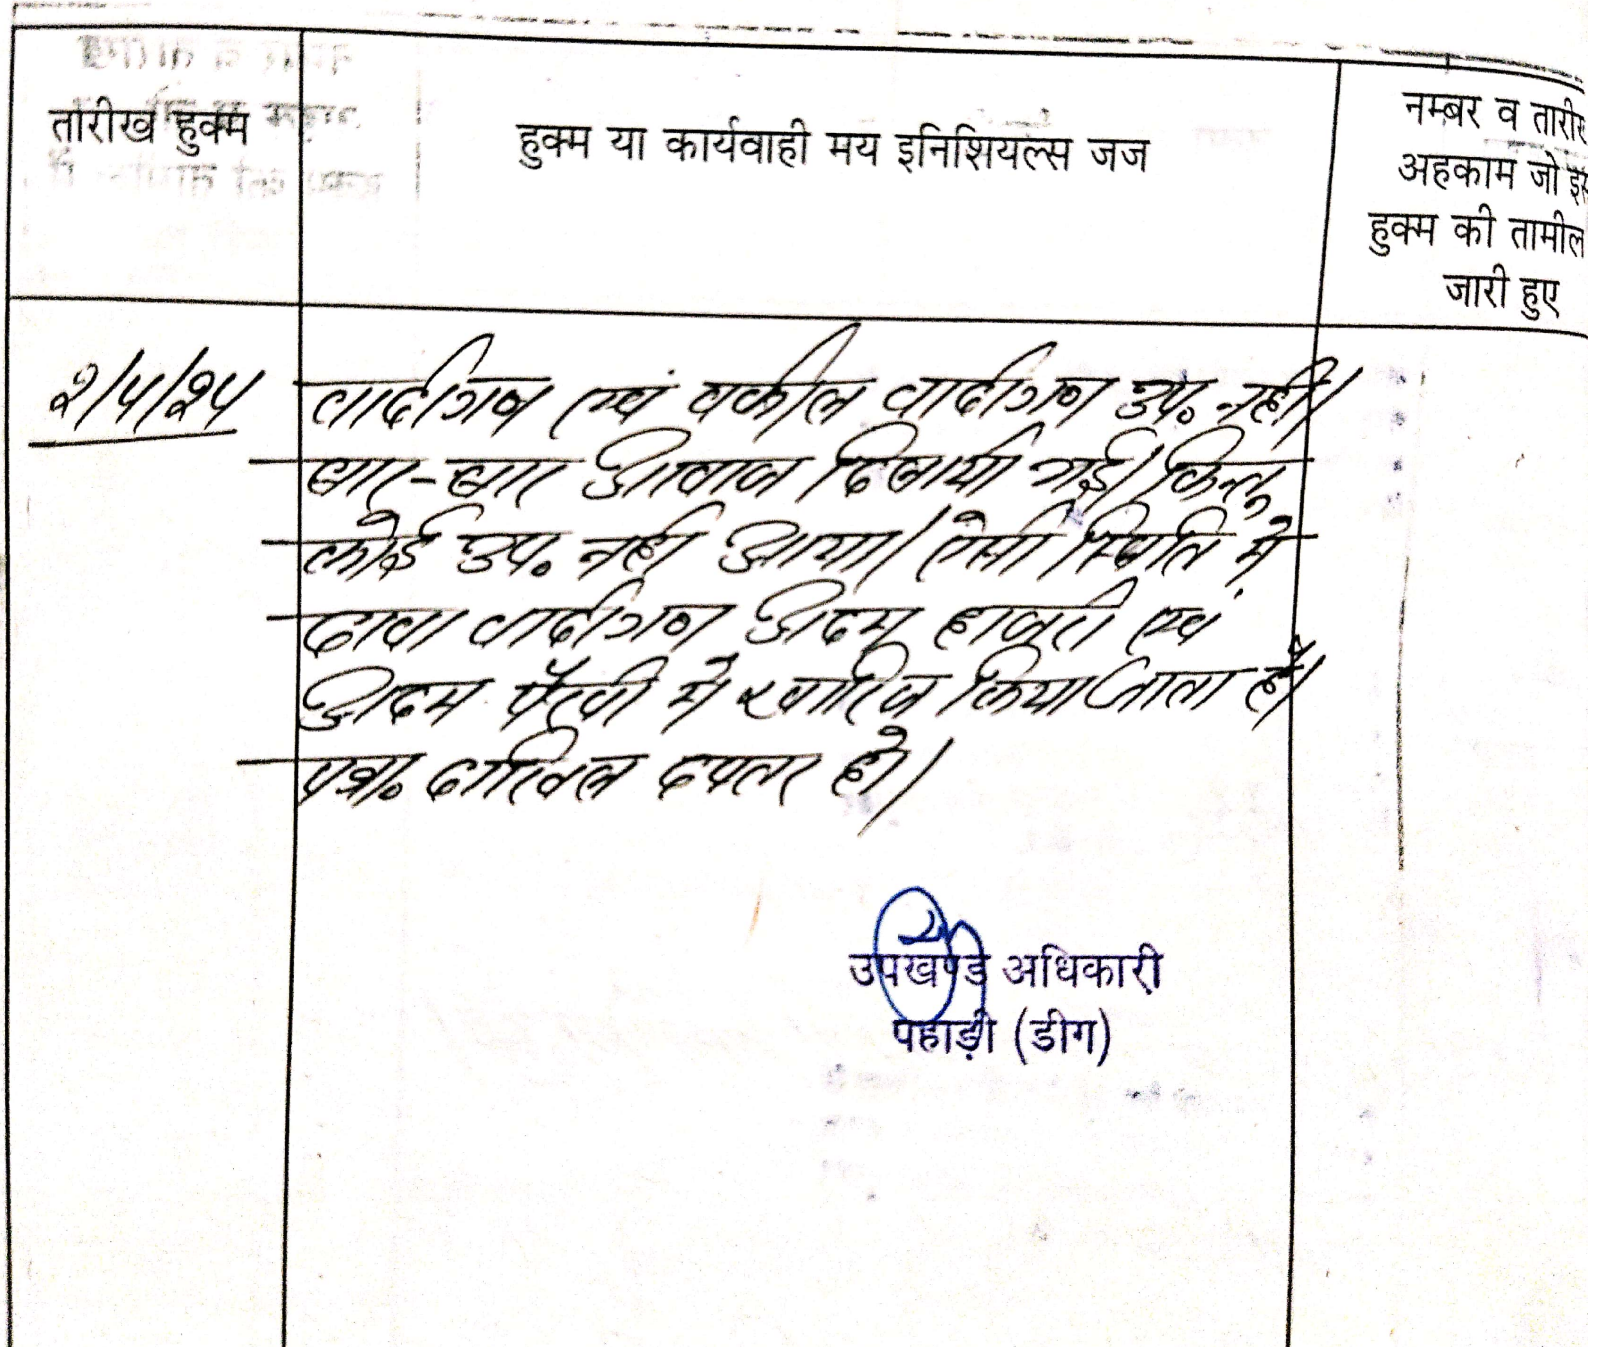 तारीख हुक्म
हुक्म या कार्यवाही मय इनिशियल्स जज
नम्बर व तारीख
अहकाम जो इस
हुक्म की तामील
जारी हुए
२/५/२५
वादीगण एवं वकील वादीगण उप. नहीं।
बार-बार आवाज दिलायी गई। किन्तु
कोई उप. नहीं आया। ऐसी स्थिति में
दावा वादीगण अदम हाजरी एवं
अदम पैरवी में खारिज किया जाता है।
पत्रा. दाखिल दफ्तर हो।
उपखण्ड अधिकारी
पहाड़ी (डीग)